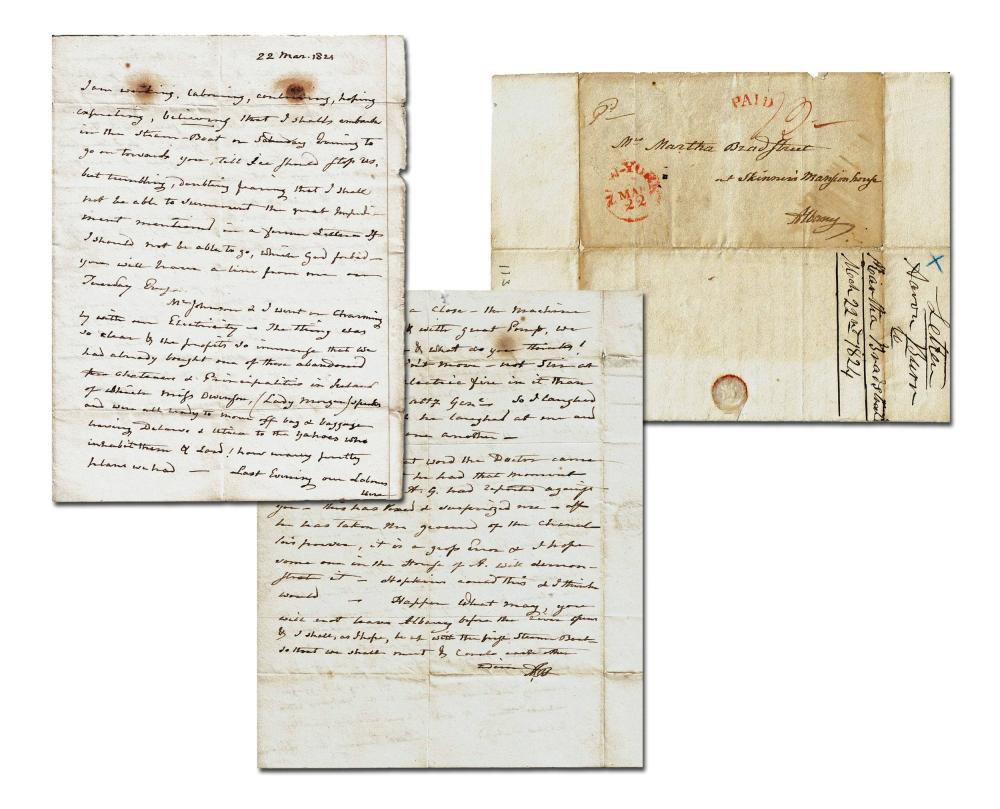 22 Mar. 1824
I am working, labouring, contriving, hoping
expecting, believing that I shall embark
in the Steam-Boat on Saturday Evening to
go on towards you, till Ice should stop us,
but trembling, doubting fearing that I shall
not be able to surmount the great Impedi-
ment mentioned in a former Letter. If
I should not be able to go, which God forbid-
you will have a line from me on
Tuesday
Mr Johnson & I went on charming
ly with our Electricity - The thing was
so clear & the profits so immense that we
had already bought one of those abandoned
chateaus & Principalities in Ireland
of which Miss Owenson, (Lady Morgan) speaks
and were all ready to move off bag & baggage
leaving Delaware & Utica to the Yahoos who
inhabit them & Lord! how many pretty
plans we had — Last Evening our Labours
were
a close - the Machine
with great Pomp, we
& what do you think!
not move - not Stir at
electric fire in it than
So I laughed
he laughed at me and
one another -
word the Doctor came
he had that moment
A. G. had reported against
you - this has & surprized me - off
he has taken the ground of the Chancel
lor's power, it is a gross Error & I hope
some one in the House of A. will demon-
strate it - Hopkins could this & I think
would — Happen what may, you
will not leave Albany before the River opens
& I shall, as I hope, be up with the first Steam Boat-
so that we shall meet & Consle each other
AB
PAID
Mrs Martha Bradstreet
at Skinner's Mansion house
Albany
N-YORK
MAR
22
113
X
Letter
Aaron Burr
to
Martha Bradstreet
Mch 22nd 1824